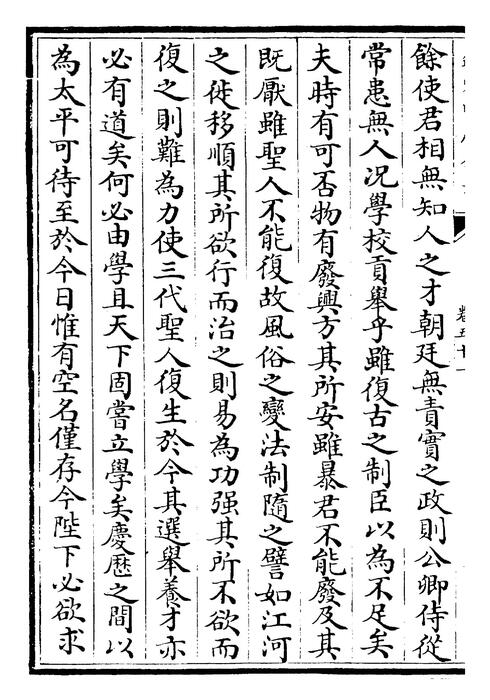 餘使君相無知人之才朝廷無責實之政則公卿侍從
常患無人况學校貢舉乎雖復古之制臣以為不足矣
夫時有可否物有廢興方其所安雖暴君不能廢及其
既厭雖聖人不能復故風俗之變法制隨之譬如江河
之徙移順其所欲行而治之則易為功强其所不欲而
復之則難為力使三代聖人復生於今其選舉養才亦
必有道矣何必由學且天下固嘗立學矣慶歷之間以
為太平可待至於今日惟有空名僅存今陛下必欲求
卷五十一